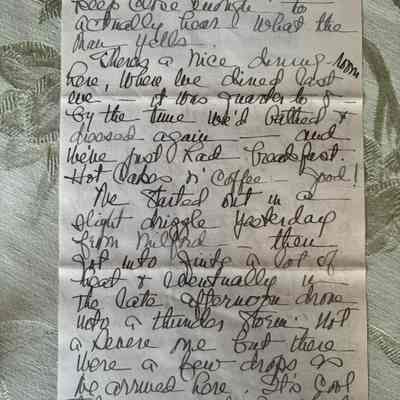 keep close enough - to
actually hear! What the
man yells.
There's a nice dining-room
here, where we dined last
eve - it was quarter to 8
by the time we'd bathed &
dressed again - and
we've just had breakfast.
Hot cakes n' coffee - good!
We started out in a
slight drizzle yesterday
from Milford - then
got into quite a lot of
heat & eventually in
the late afternoon drove
into a thunder storm. Not
a severe one but there
were a few drops as
we arrived here. It's cool